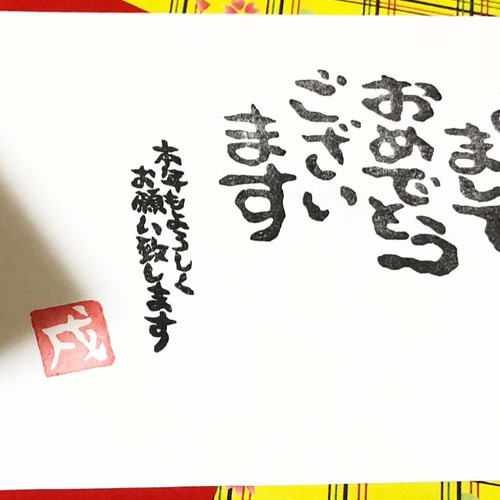 まして
おめでとう
ござい
ます
本年もよろしく
お願い致します
戌